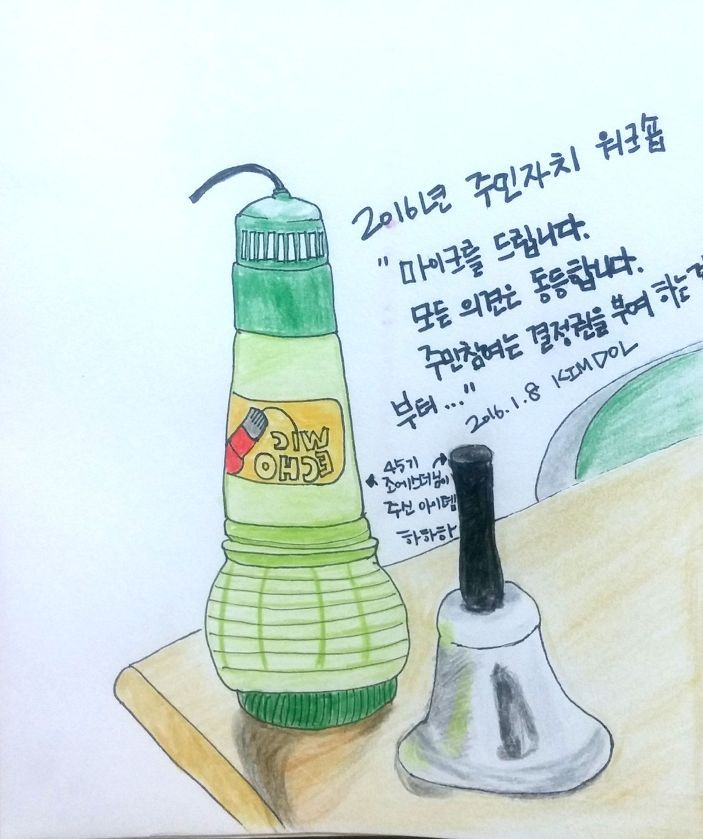 2016년 주민자치 워크숍
"마이크를 드립니다.
모든 의견은 동등합니다.
주민참여는 결정권을 부여 하는
부터..."
2016.1.8 KIMDOL
45기
조에스더님이
주신 아이템
하하하
ECHO
MIC